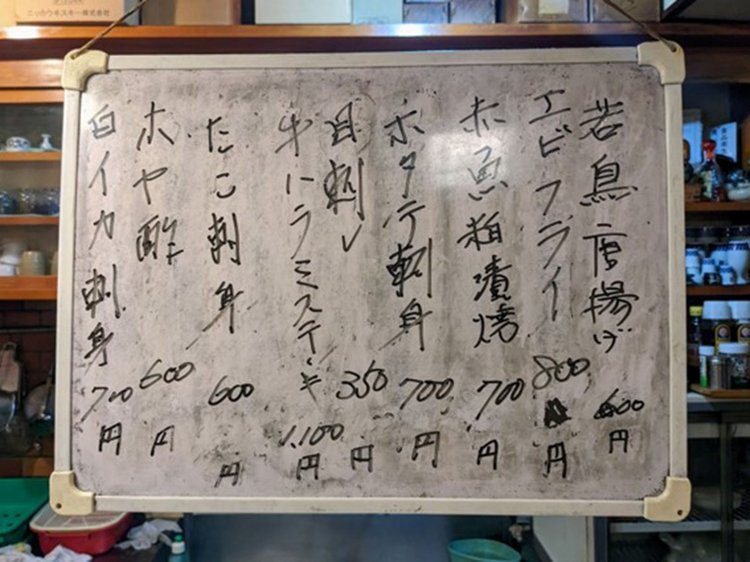 ニッカウヰスキー株式会社
若鳥唐揚げ 600円
エビフライ 800円
赤魚粕漬焼 700円
ホタテ刺身 700円
目刺し 350円
牛ハラミステーキ 1,100円
たこ刺身 600円
ホヤ酢 600円
白イカ刺身 700円